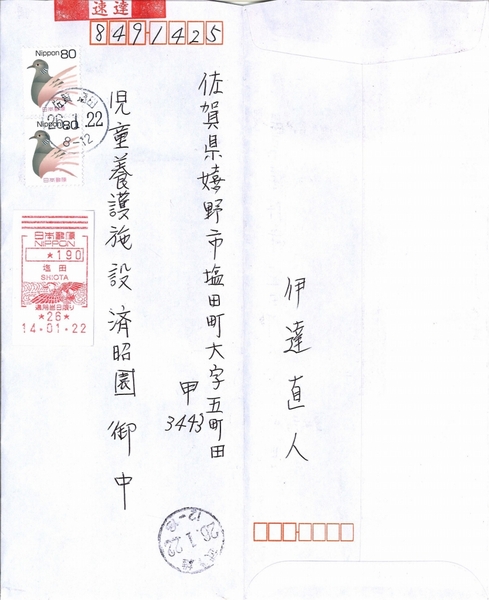 速達
8491425
佐賀県嬉野市塩田町大字五町田
甲
3443
児童養護施設 済昭園 御中
Nippon 80
日本郵便
Nippon 80
日本郵便
22
8-12
日本郵便
NIPPON
*190
塩田
SHIOTA
*26*
14.01.22
26.1.22
12-18
伊達直人